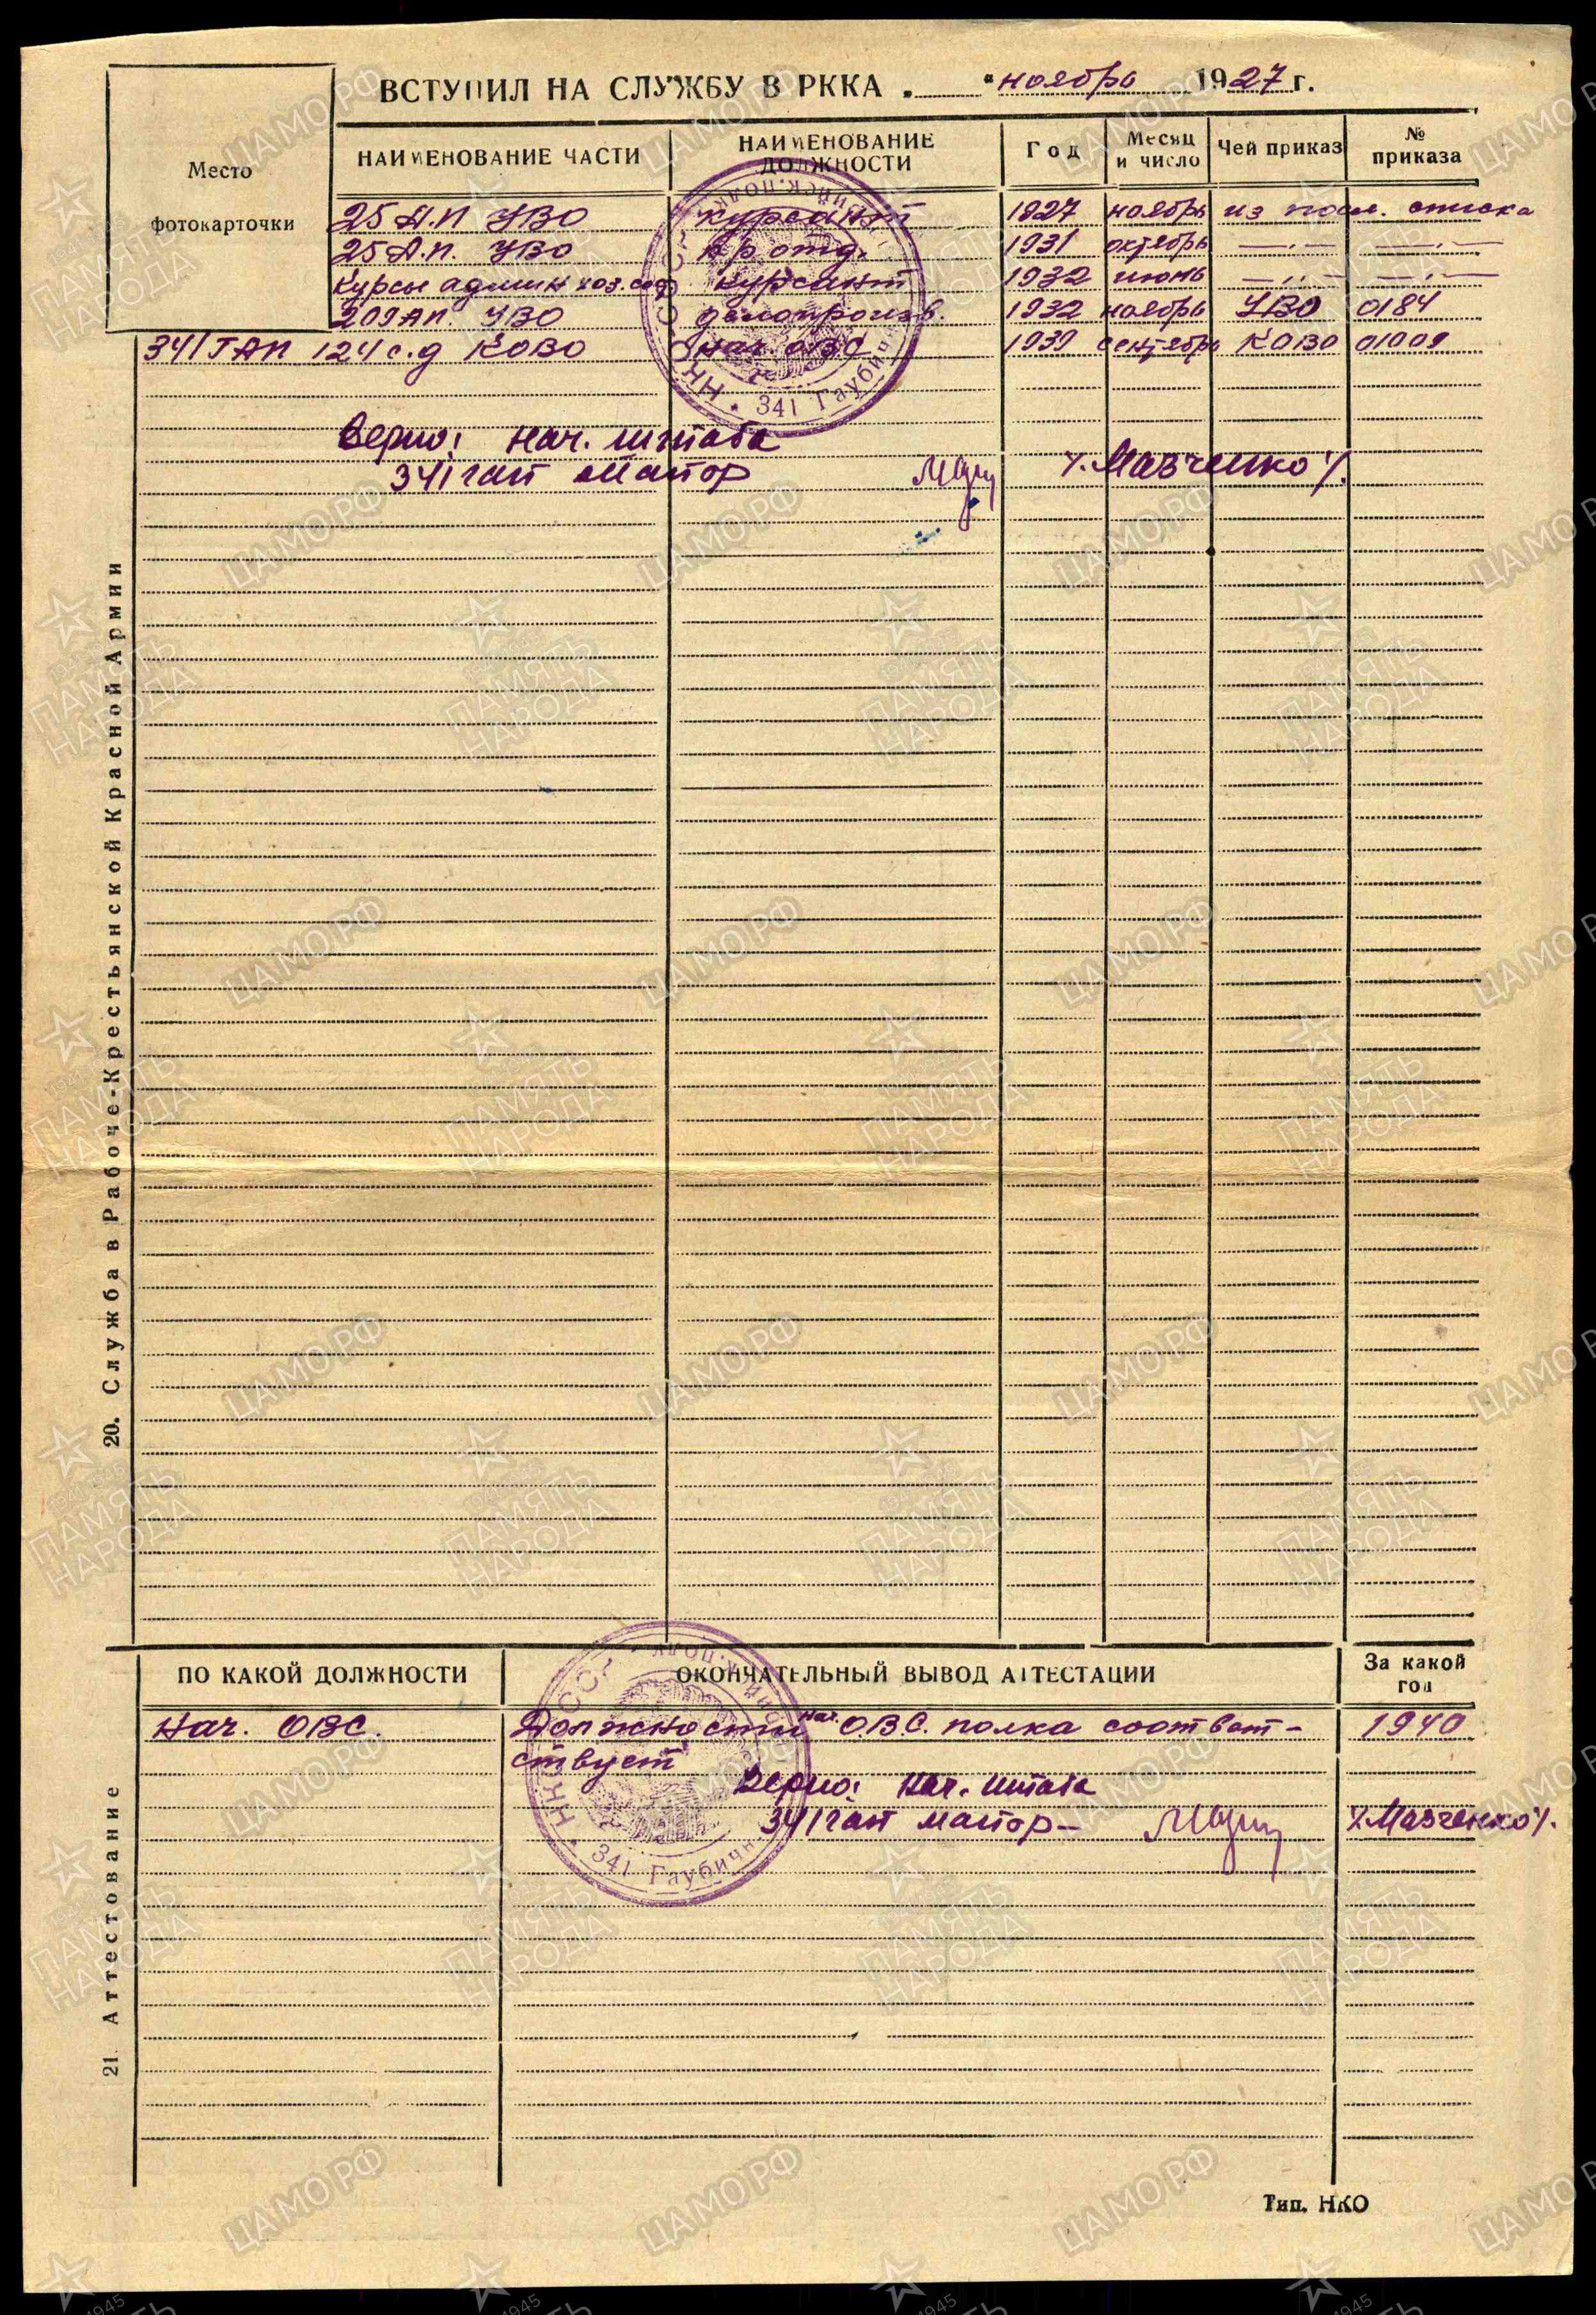 ВСТУПИЛ НА СЛУЖБУ В РККА „ “ ноябрь 1927 г.
Место фотокарточки
НАИМЕНОВАНИЕ ЧАСТИ НАИМЕНОВАНИЕ ДОЛЖНОСТИ Год Месяц и число Чей приказ № приказа
25 А.П УВО курсант 1927 ноябрь из посл. списка
25 А.П. УВО отд. 1931 октябрь —„— —„—
Курсы админ хоз. курсант 1932 июнь —„— —„—
209 АП. УВО делопроизв. 1932 ноябрь УВО 0184
341 ГАП 124 с.д КОВО нач. ОВС 1939 сентябрь КОВО 01009
Верно: Нач. штаба
341 гап майор /Мазченко/.
НКО СССР • 341 Гаубичн
20. Служба в Рабоче-Крестьянской Красной Армии
ПО КАКОЙ ДОЛЖНОСТИ ОКОНЧАТЕЛЬНЫЙ ВЫВОД АТТЕСТАЦИИ За какой год
Нач. ОВС. Должности нач. О.В.С. полка соответ- 1940
ствует
Верно: Нач. штаба
341 гап майор- /Мазченко/.
НКО СССР • 341 Гаубичн
21. Аттестование
Тип. НКО
ЦАМО.РФ
ПАМЯТЬ НАРОДА